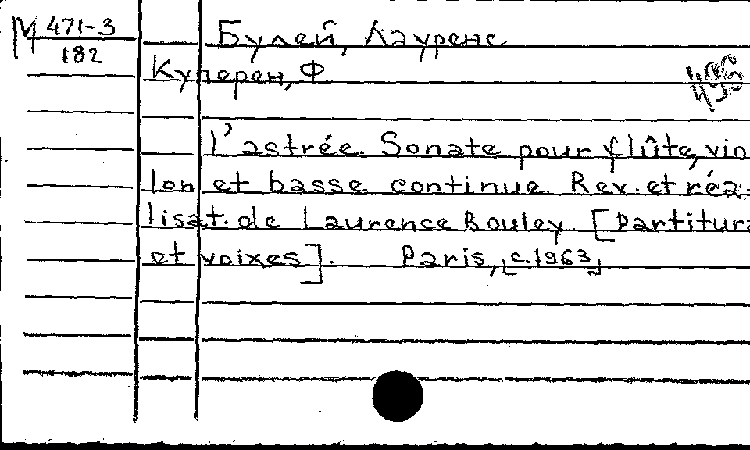 М 471-3
182
Булей, Лауренс
Куперен, Ф
L'astrée. Sonate pour flûte, vio
lon et basse continue Rev. et réa-
lisat. de Laurence Bouley [Partitura
et voixes]. Paris, [c.1963]